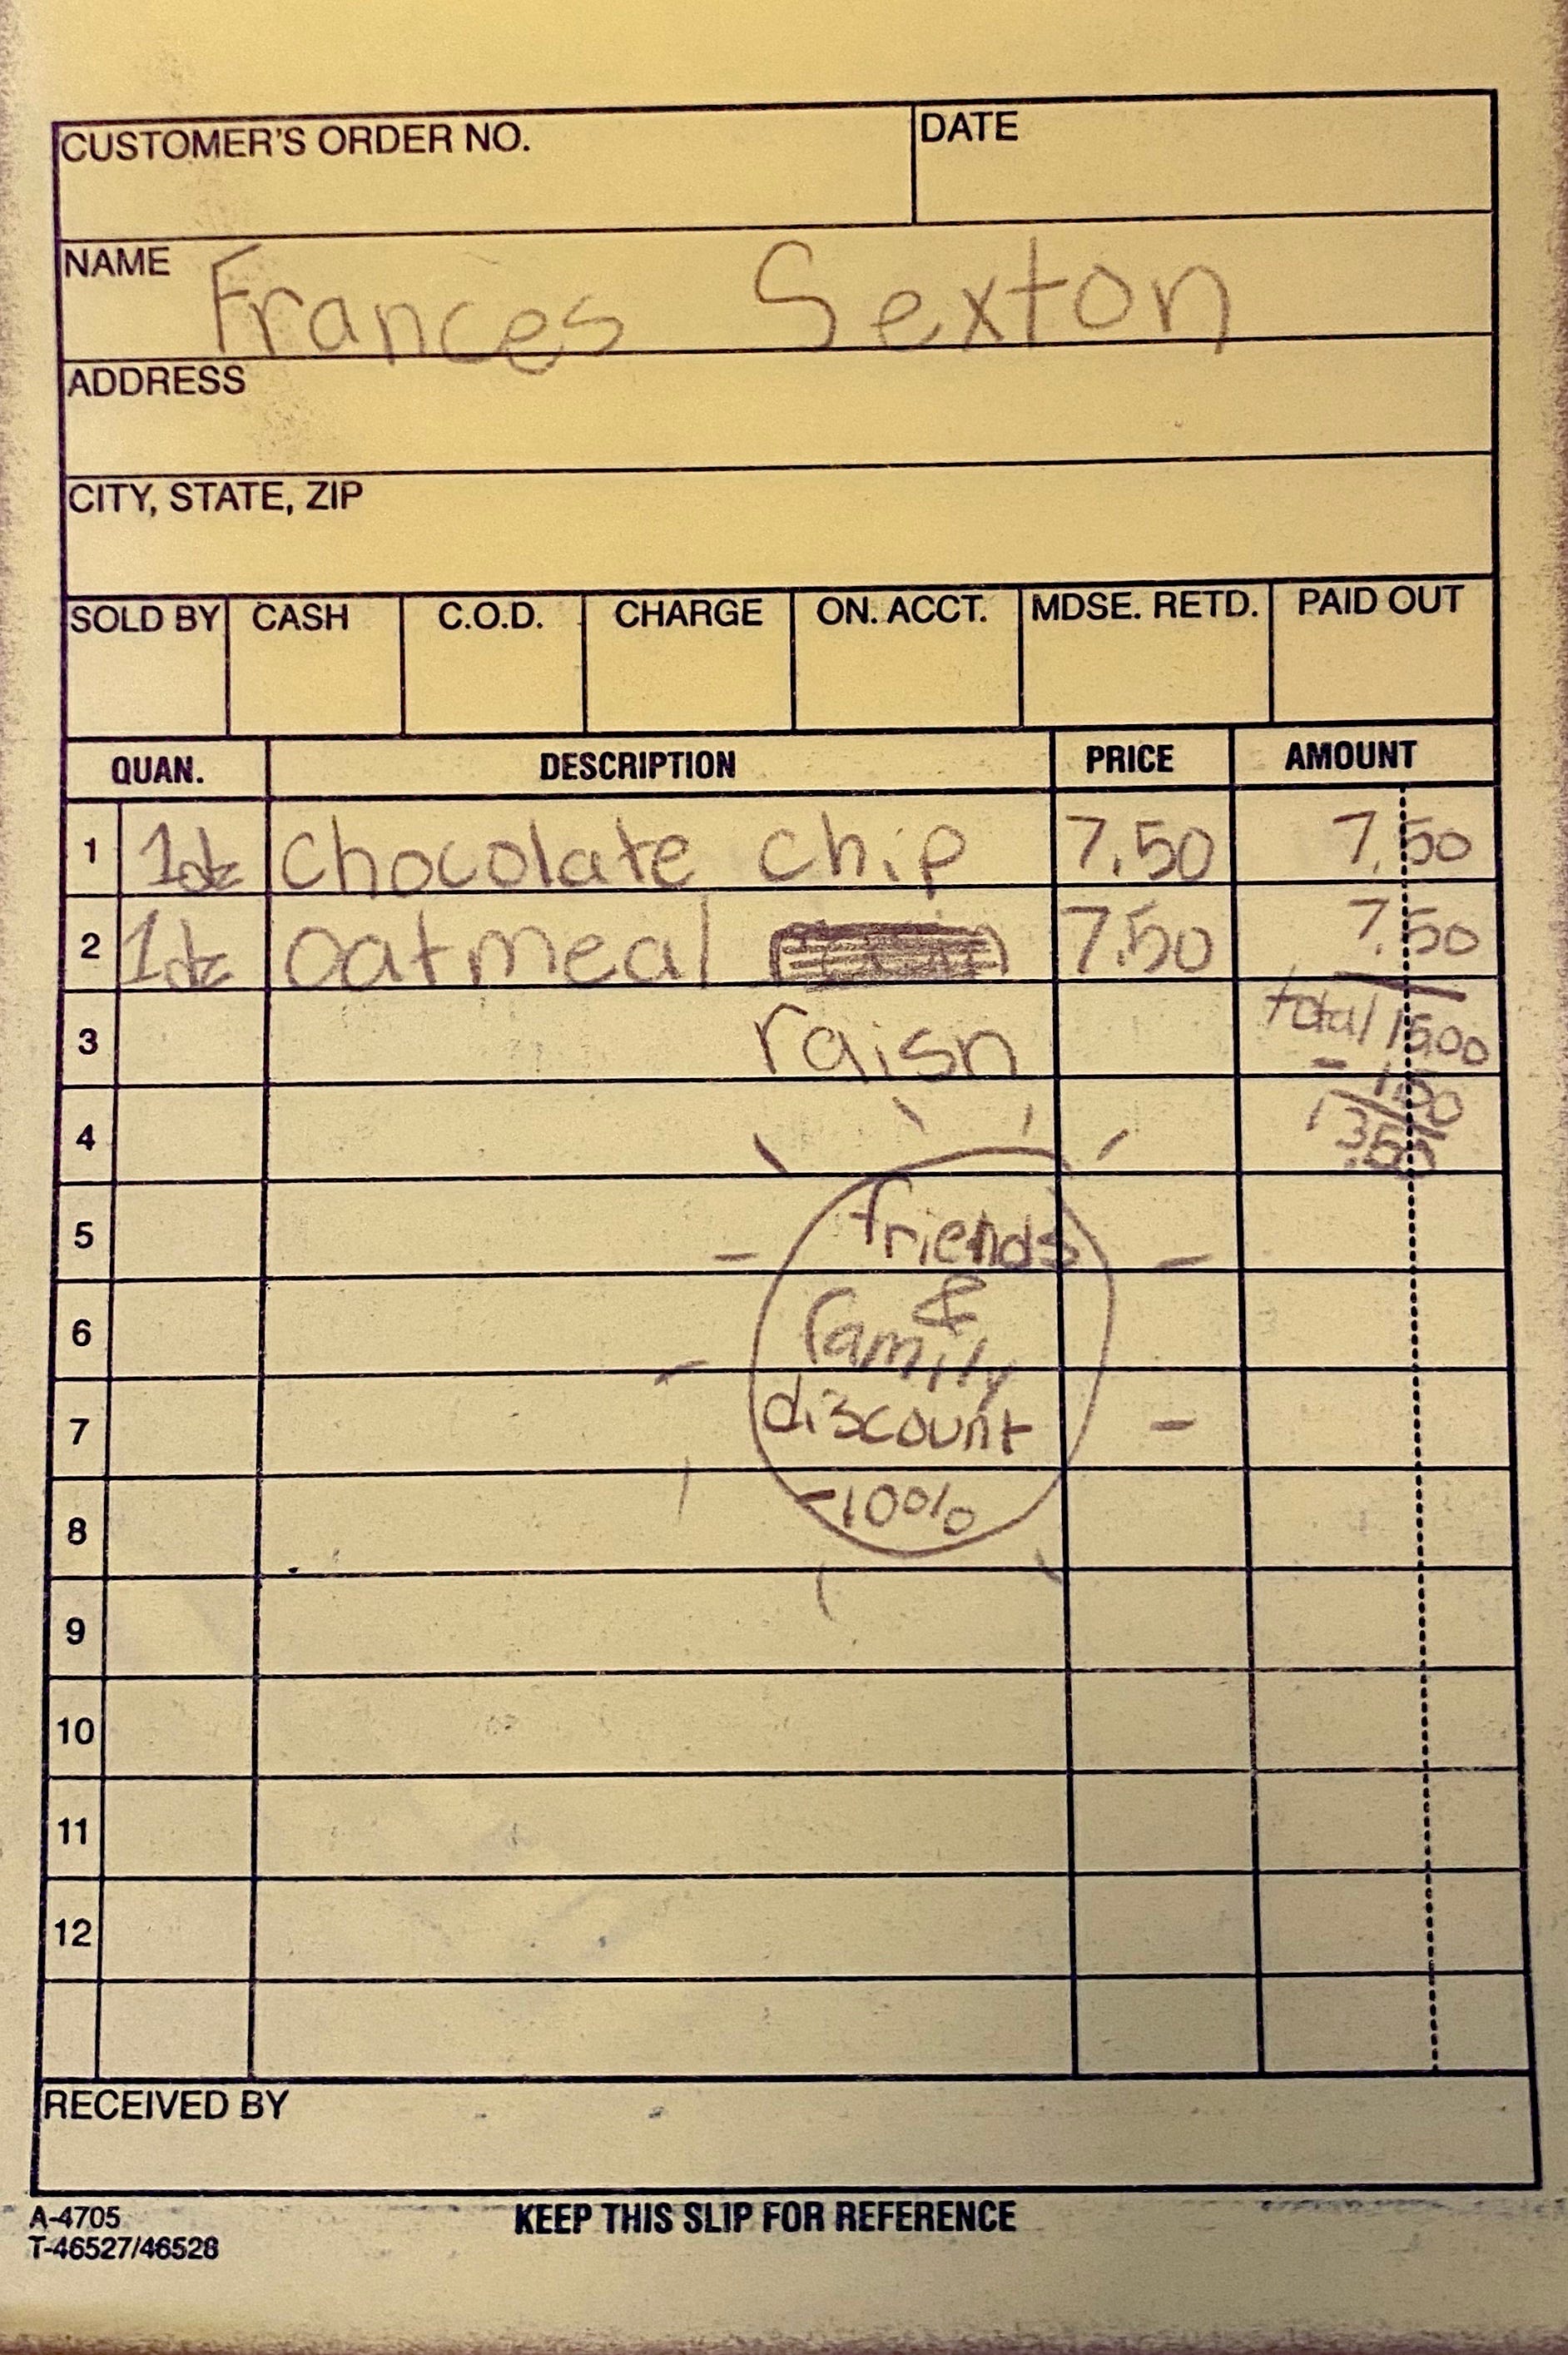 CUSTOMER'S ORDER NO. DATE
NAME Frances Sexton
ADDRESS
CITY, STATE, ZIP
SOLD BY CASH C.O.D. CHARGE ON. ACCT. MDSE. RETD. PAID OUT
QUAN. DESCRIPTION PRICE AMOUNT
1 1dz Chocolate chip 7.50 7.50
2 1dz oatmeal 7.50 7.50
3 raisn total 15.00
- 1.50
4 13.50
5 friends
&
6 family
7 discount
8 -10%
9
10
11
12
RECEIVED BY
A-4705 KEEP THIS SLIP FOR REFERENCE
T-46527/46528